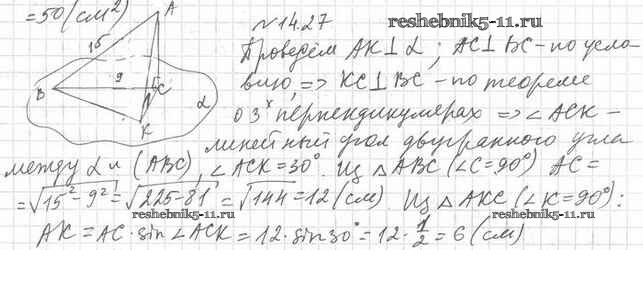 = 50 (см²)
№ 14.27
reshebnik5-11.ru
Проведём AK⊥α; AC⊥BC - по усло-
вию, => KC⊥BC - по теореме
о 3ˣ перпендикулярах => ∠ACK -
линейный угол двугранного угла
между α и (ABC), ∠ACK = 30°. Из △ABC (∠C = 90°) AC =
= √15² - 9² = √225 - 81 = √144 = 12 (см). Из △AKC (∠K = 90°):
reshebnik5-11.ru
reshebnik5-11.ru
AK = AC · sin∠ACK = 12 · sin30° = 12 · 1/2 = 6 (см)
A
15
9
B
C
K
α